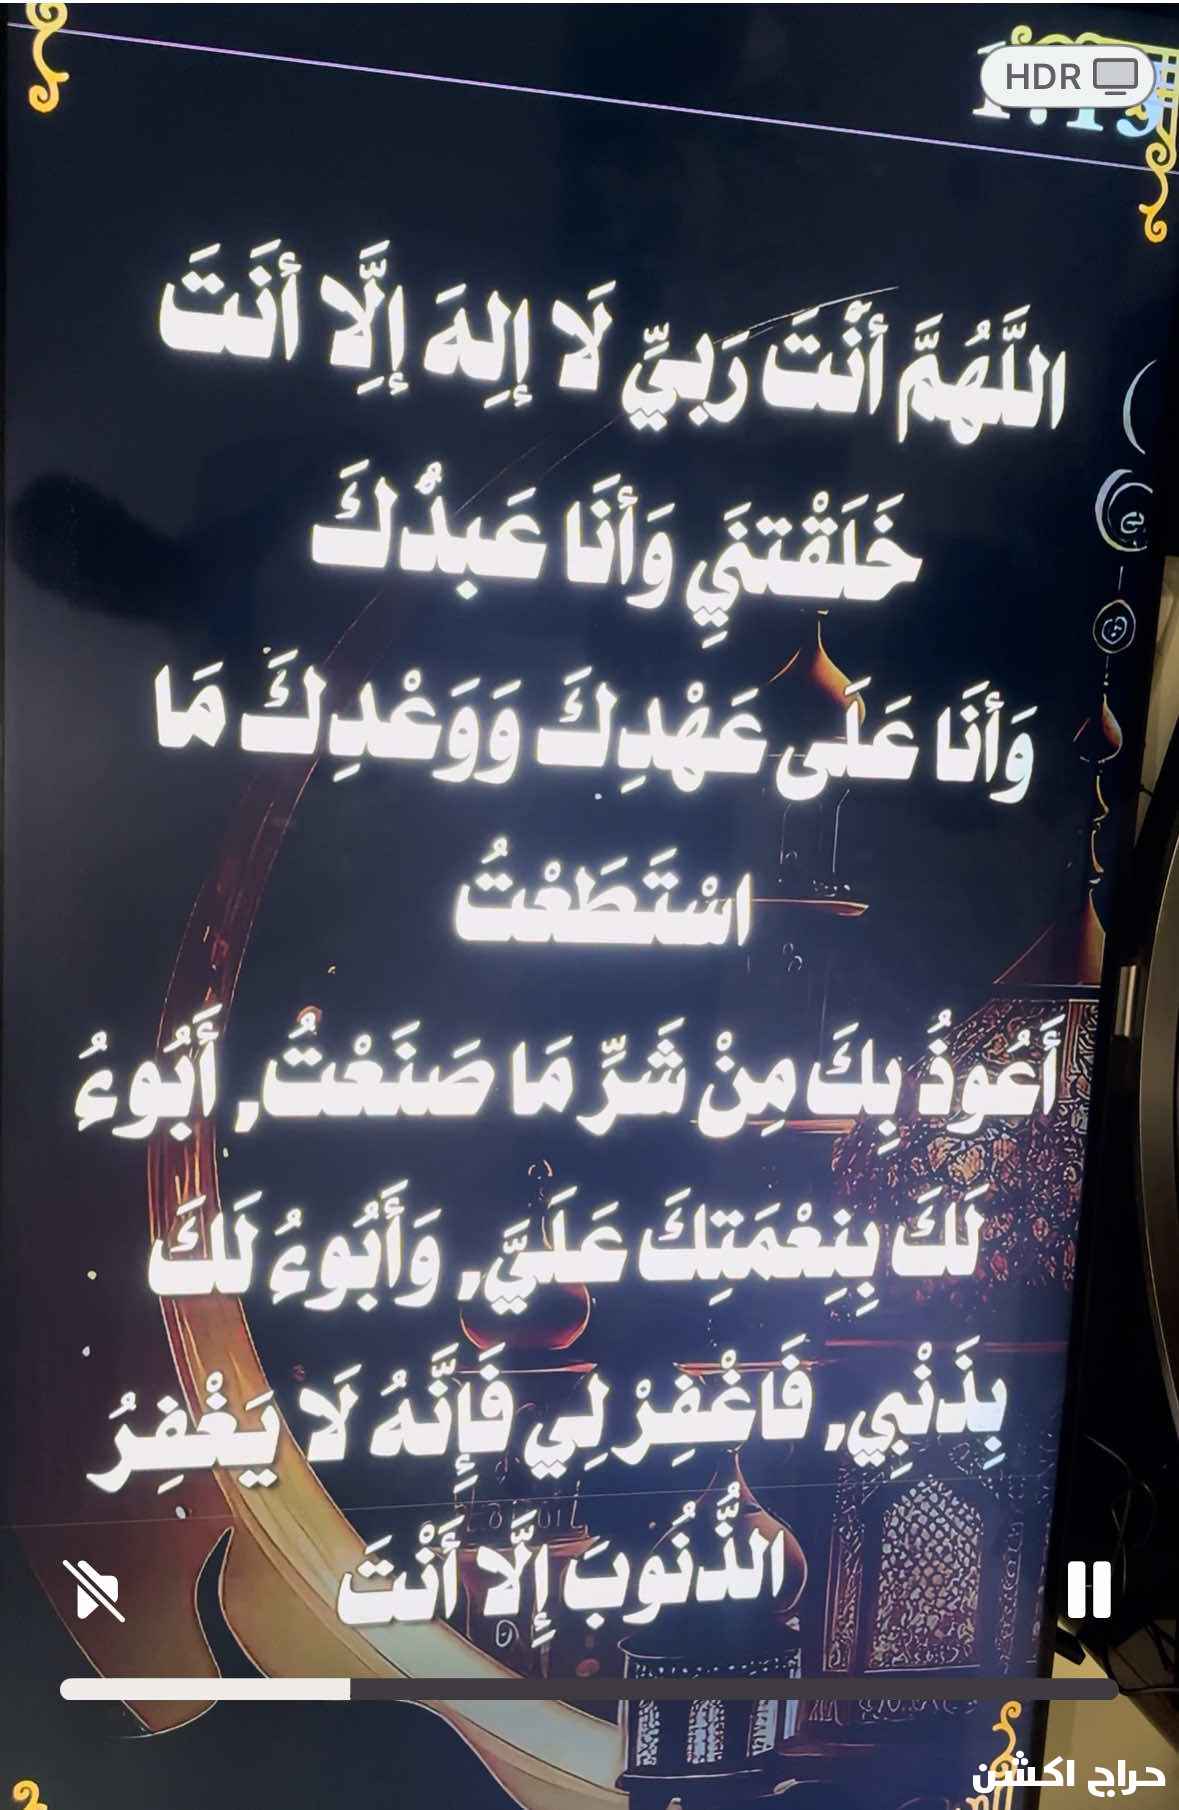 HDR
اللَّهُمَّ أَنْتَ رَبِيِّ لَا إِلهَ إِلَّا أنَتَ
خَلَقْتنَيِ وَأنَا عَبدُكَ
وَأنَا عَلَى عَهْدِكَ وَوَعْدِكَ مَا
اسْتَطَعْتُ
أَعُوذُ بِكَ مِنْ شَرِّ مَا صَنَعْتُ, أَبُوءُ
لَكَ بِنِعْمَتِكَ عَلَيَّ, وَأَبُوءُ لَكَ
بِذَنْبِي, فَاغْفِرْ لِي فَإِنَّهُ لَا يَغْفِرُ
الذُّنُوبَ إِلَّا أَنْتَ
حراج اكشن